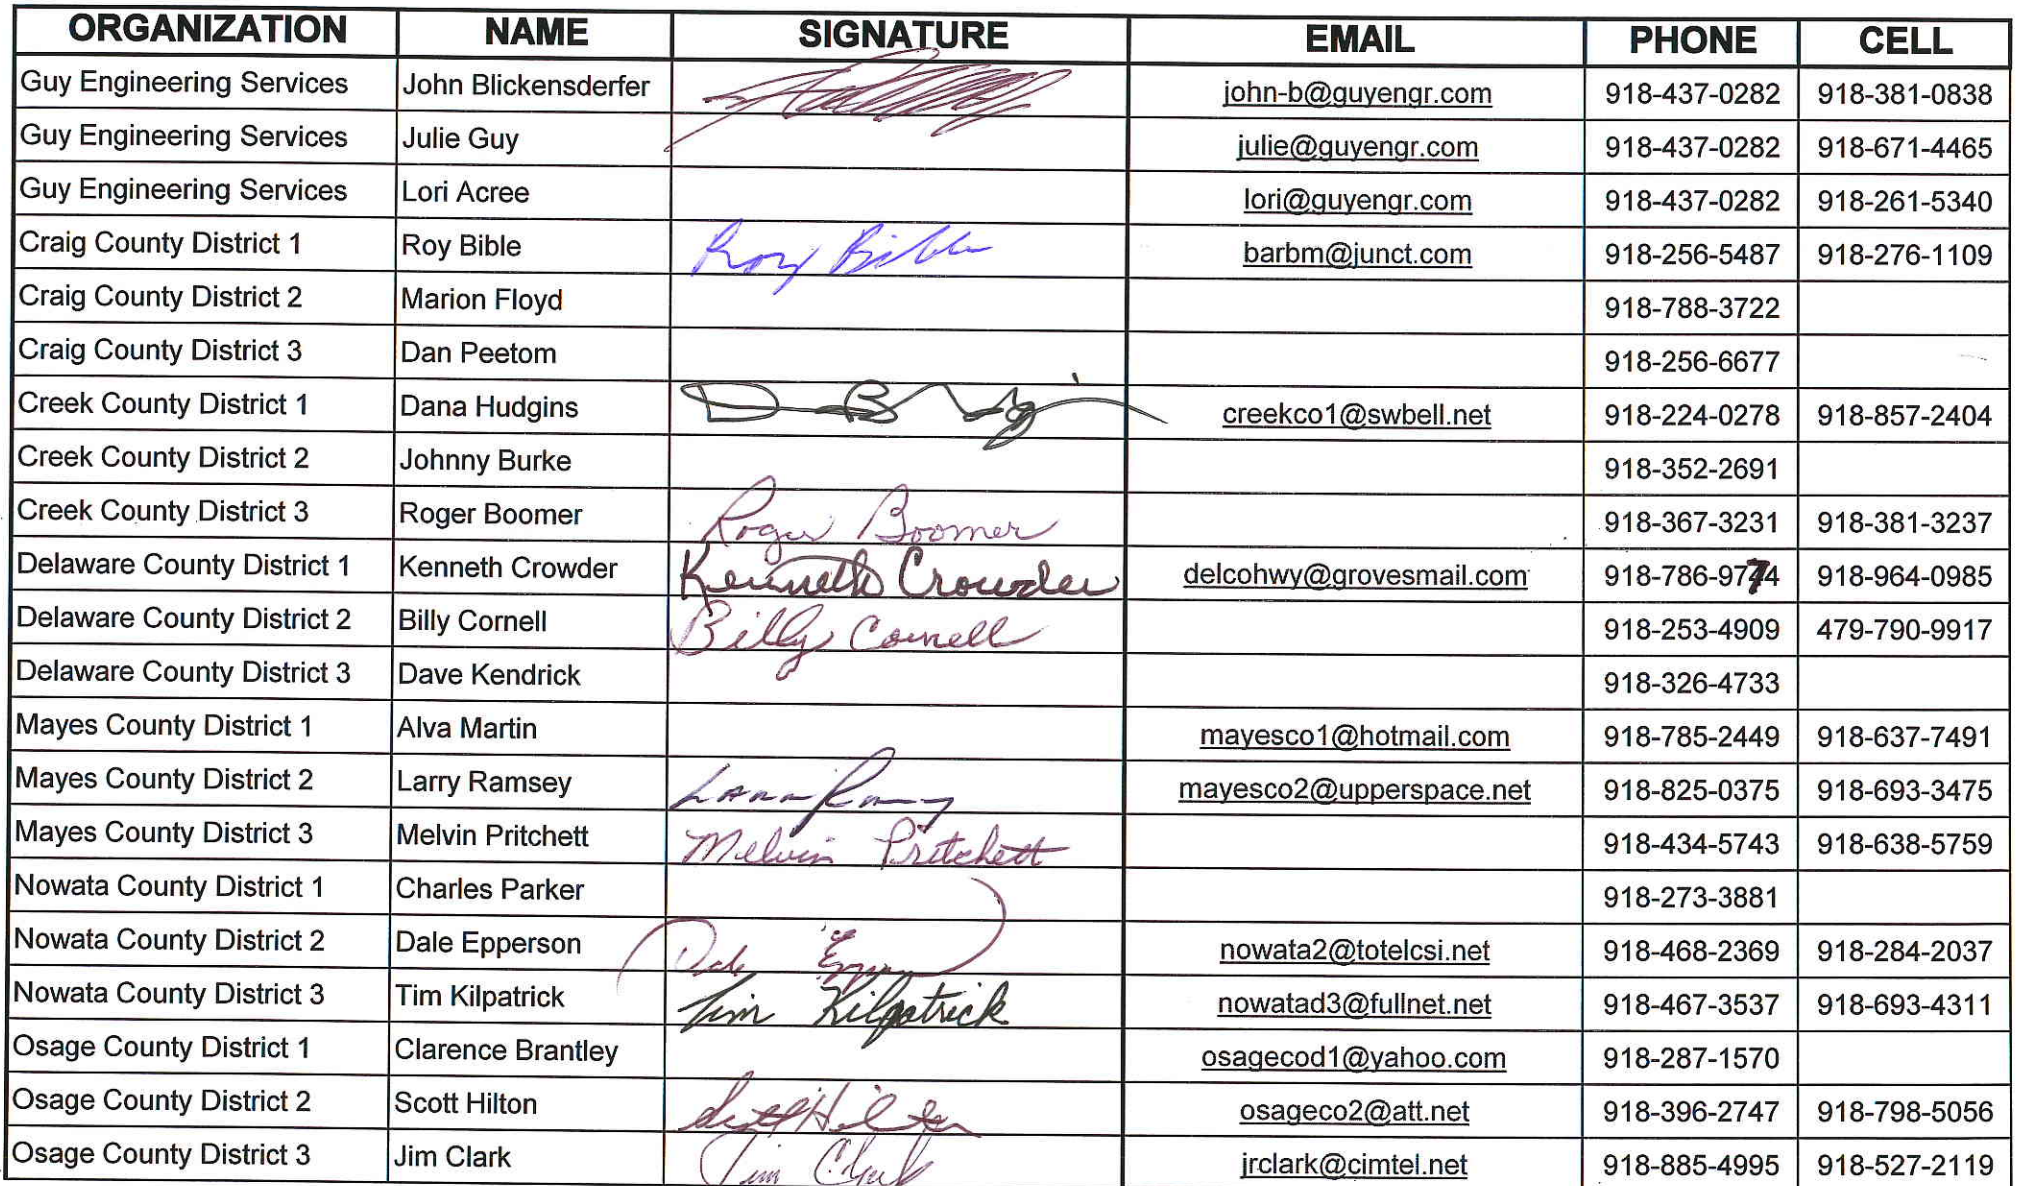 ORGANIZATION NAME SIGNATURE EMAIL PHONE CELL
Guy Engineering Services John Blickensderfer john-b@guyengr.com 918-437-0282 918-381-0838
Guy Engineering Services Julie Guy julie@guyengr.com 918-437-0282 918-671-4465
Guy Engineering Services Lori Acree lori@guyengr.com 918-437-0282 918-261-5340
Craig County District 1 Roy Bible Roy Bible barbm@junct.com 918-256-5487 918-276-1109
Craig County District 2 Marion Floyd 918-788-3722
Craig County District 3 Dan Peetom 918-256-6677
Creek County District 1 Dana Hudgins creekco1@swbell.net 918-224-0278 918-857-2404
Creek County District 2 Johnny Burke 918-352-2691
Creek County District 3 Roger Boomer Roger Boomer 918-367-3231 918-381-3237
Delaware County District 1 Kenneth Crowder Kenneth Crowder delcohwy@grovesmail.com 918-786-9774 918-964-0985
Delaware County District 2 Billy Cornell Billy Cornell 918-253-4909 479-790-9917
Delaware County District 3 Dave Kendrick 918-326-4733
Mayes County District 1 Alva Martin mayesco1@hotmail.com 918-785-2449 918-637-7491
Mayes County District 2 Larry Ramsey mayesco2@upperspace.net 918-825-0375 918-693-3475
Mayes County District 3 Melvin Pritchett Melvin Pritchett 918-434-5743 918-638-5759
Nowata County District 1 Charles Parker 918-273-3881
Nowata County District 2 Dale Epperson nowata2@totelcsi.net 918-468-2369 918-284-2037
Nowata County District 3 Tim Kilpatrick Tim Kilpatrick nowatad3@fullnet.net 918-467-3537 918-693-4311
Osage County District 1 Clarence Brantley osagecod1@yahoo.com 918-287-1570
Osage County District 2 Scott Hilton Scott Hilton osageco2@att.net 918-396-2747 918-798-5056
Osage County District 3 Jim Clark Jim Clark jrclark@cimtel.net 918-885-4995 918-527-2119